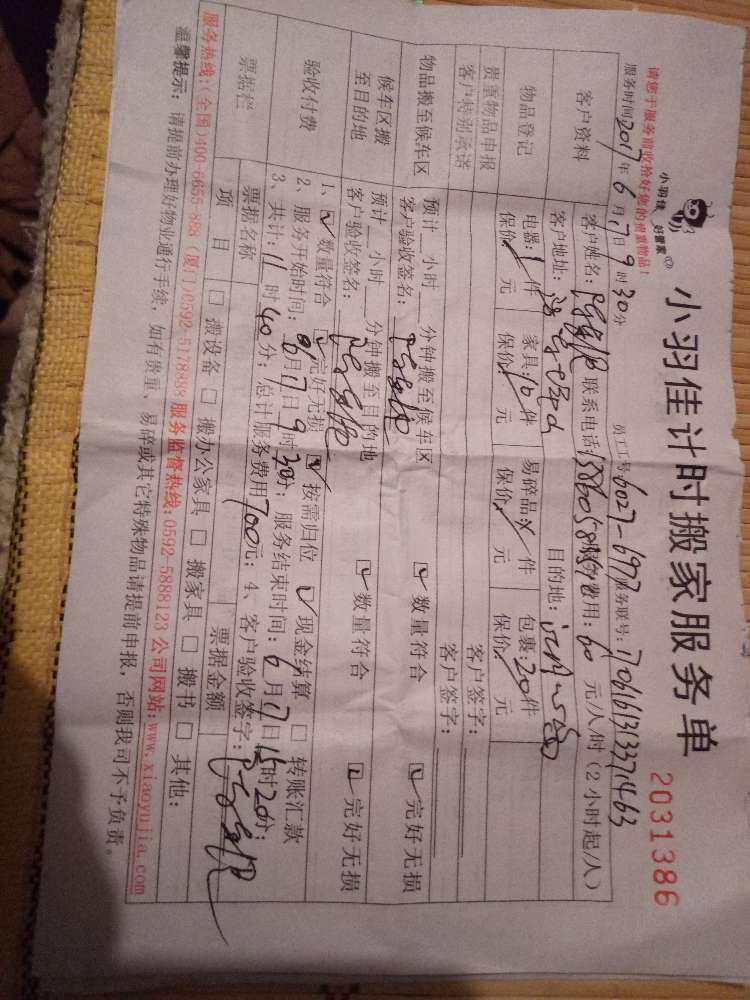 小羽佳
好管家
小羽佳计时搬家服务单
2031386
请您于服务前收拾好您的贵重物品！
服务时间2017年6月17日9时30分 员工工号6027-6977服务联号:
客户资料
客户姓名: 联系电话: 服务费用: 60元/人/时（2小时起/人）
客户地址: 目的地:
物品登记
电器:1件 家具:10件 易碎品 件 包裹:20件
保价 元 保价 元 保价 元 保价 元
贵重物品申报
客户特别承诺
客户签字:
客户签字:
物品搬至候车区
预计 小时 分钟搬至候车区 数量符合 完好无损
客户验收签名:
候车区搬至目的地
预计 小时 分钟搬至目的地 数量符合 完好无损
客户验收签名:
验收付费
1、数量符合 完好无损 按需归位 现金结算 转账汇款
2、服务开始时间: 6月17日9时30分; 服务结束时间: 6月17日15时20分;
3、共计:11时40分; 总计服务费用700元; 4、客户验收签字:
票据栏
票据名称 票据金额
项目 搬设备 搬办公家具 搬家具 搬书 其他:
服务热线:(全国)400-6655-888 (厦门)0592-5178888 服务监督热线:0592-5888123 公司网站:www.xiaoyujia.com
温馨提示: 请提前办理好物业通行手续，如有贵重、易碎或其它特殊物品请提前申报，否则我司不予负责。